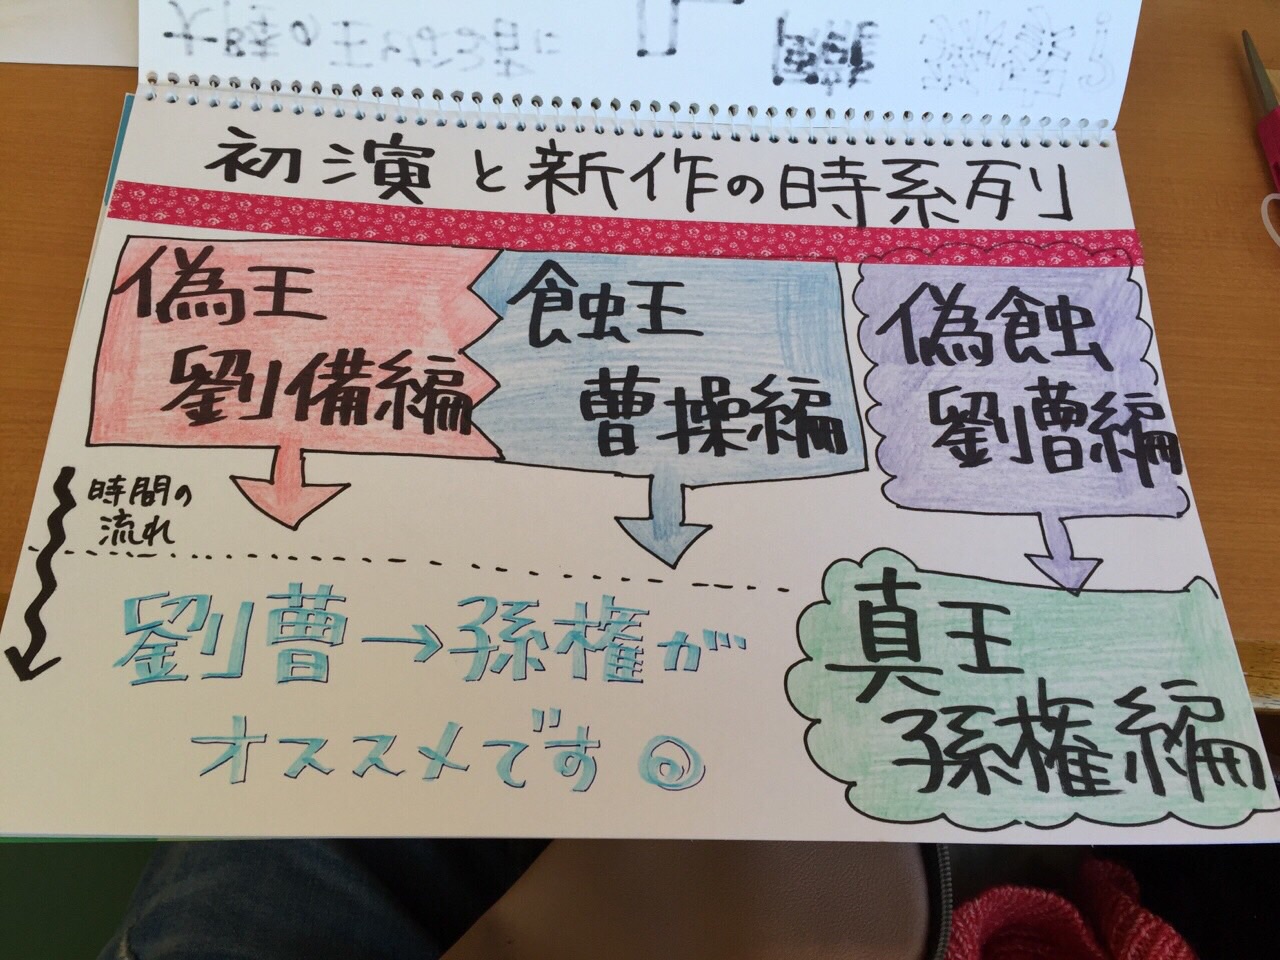 初演と新作の時系列
偽王
劉備編
蝕王
曹操編
偽蝕
劉曹編
時間の
流れ
劉曹→孫権が
オススメです
真王
孫権編